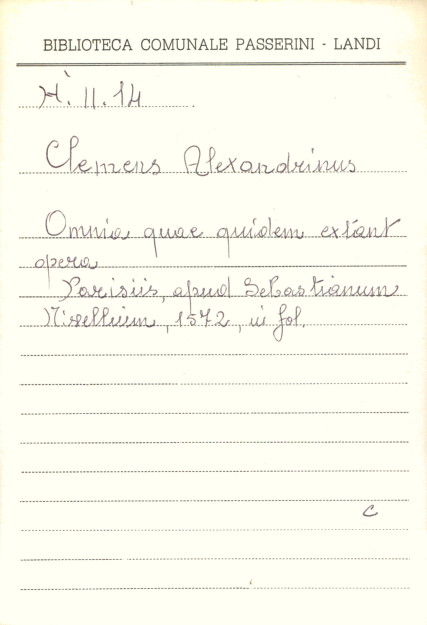 BIBLIOTECA COMUNALE PASSERINI - LANDI
H̀. II. 14
Clemens Alexandrinus
Omnia quae quidem extant
opera
Parisiis, apud Sebastianum
Nivellium, 1572, in fol.
C